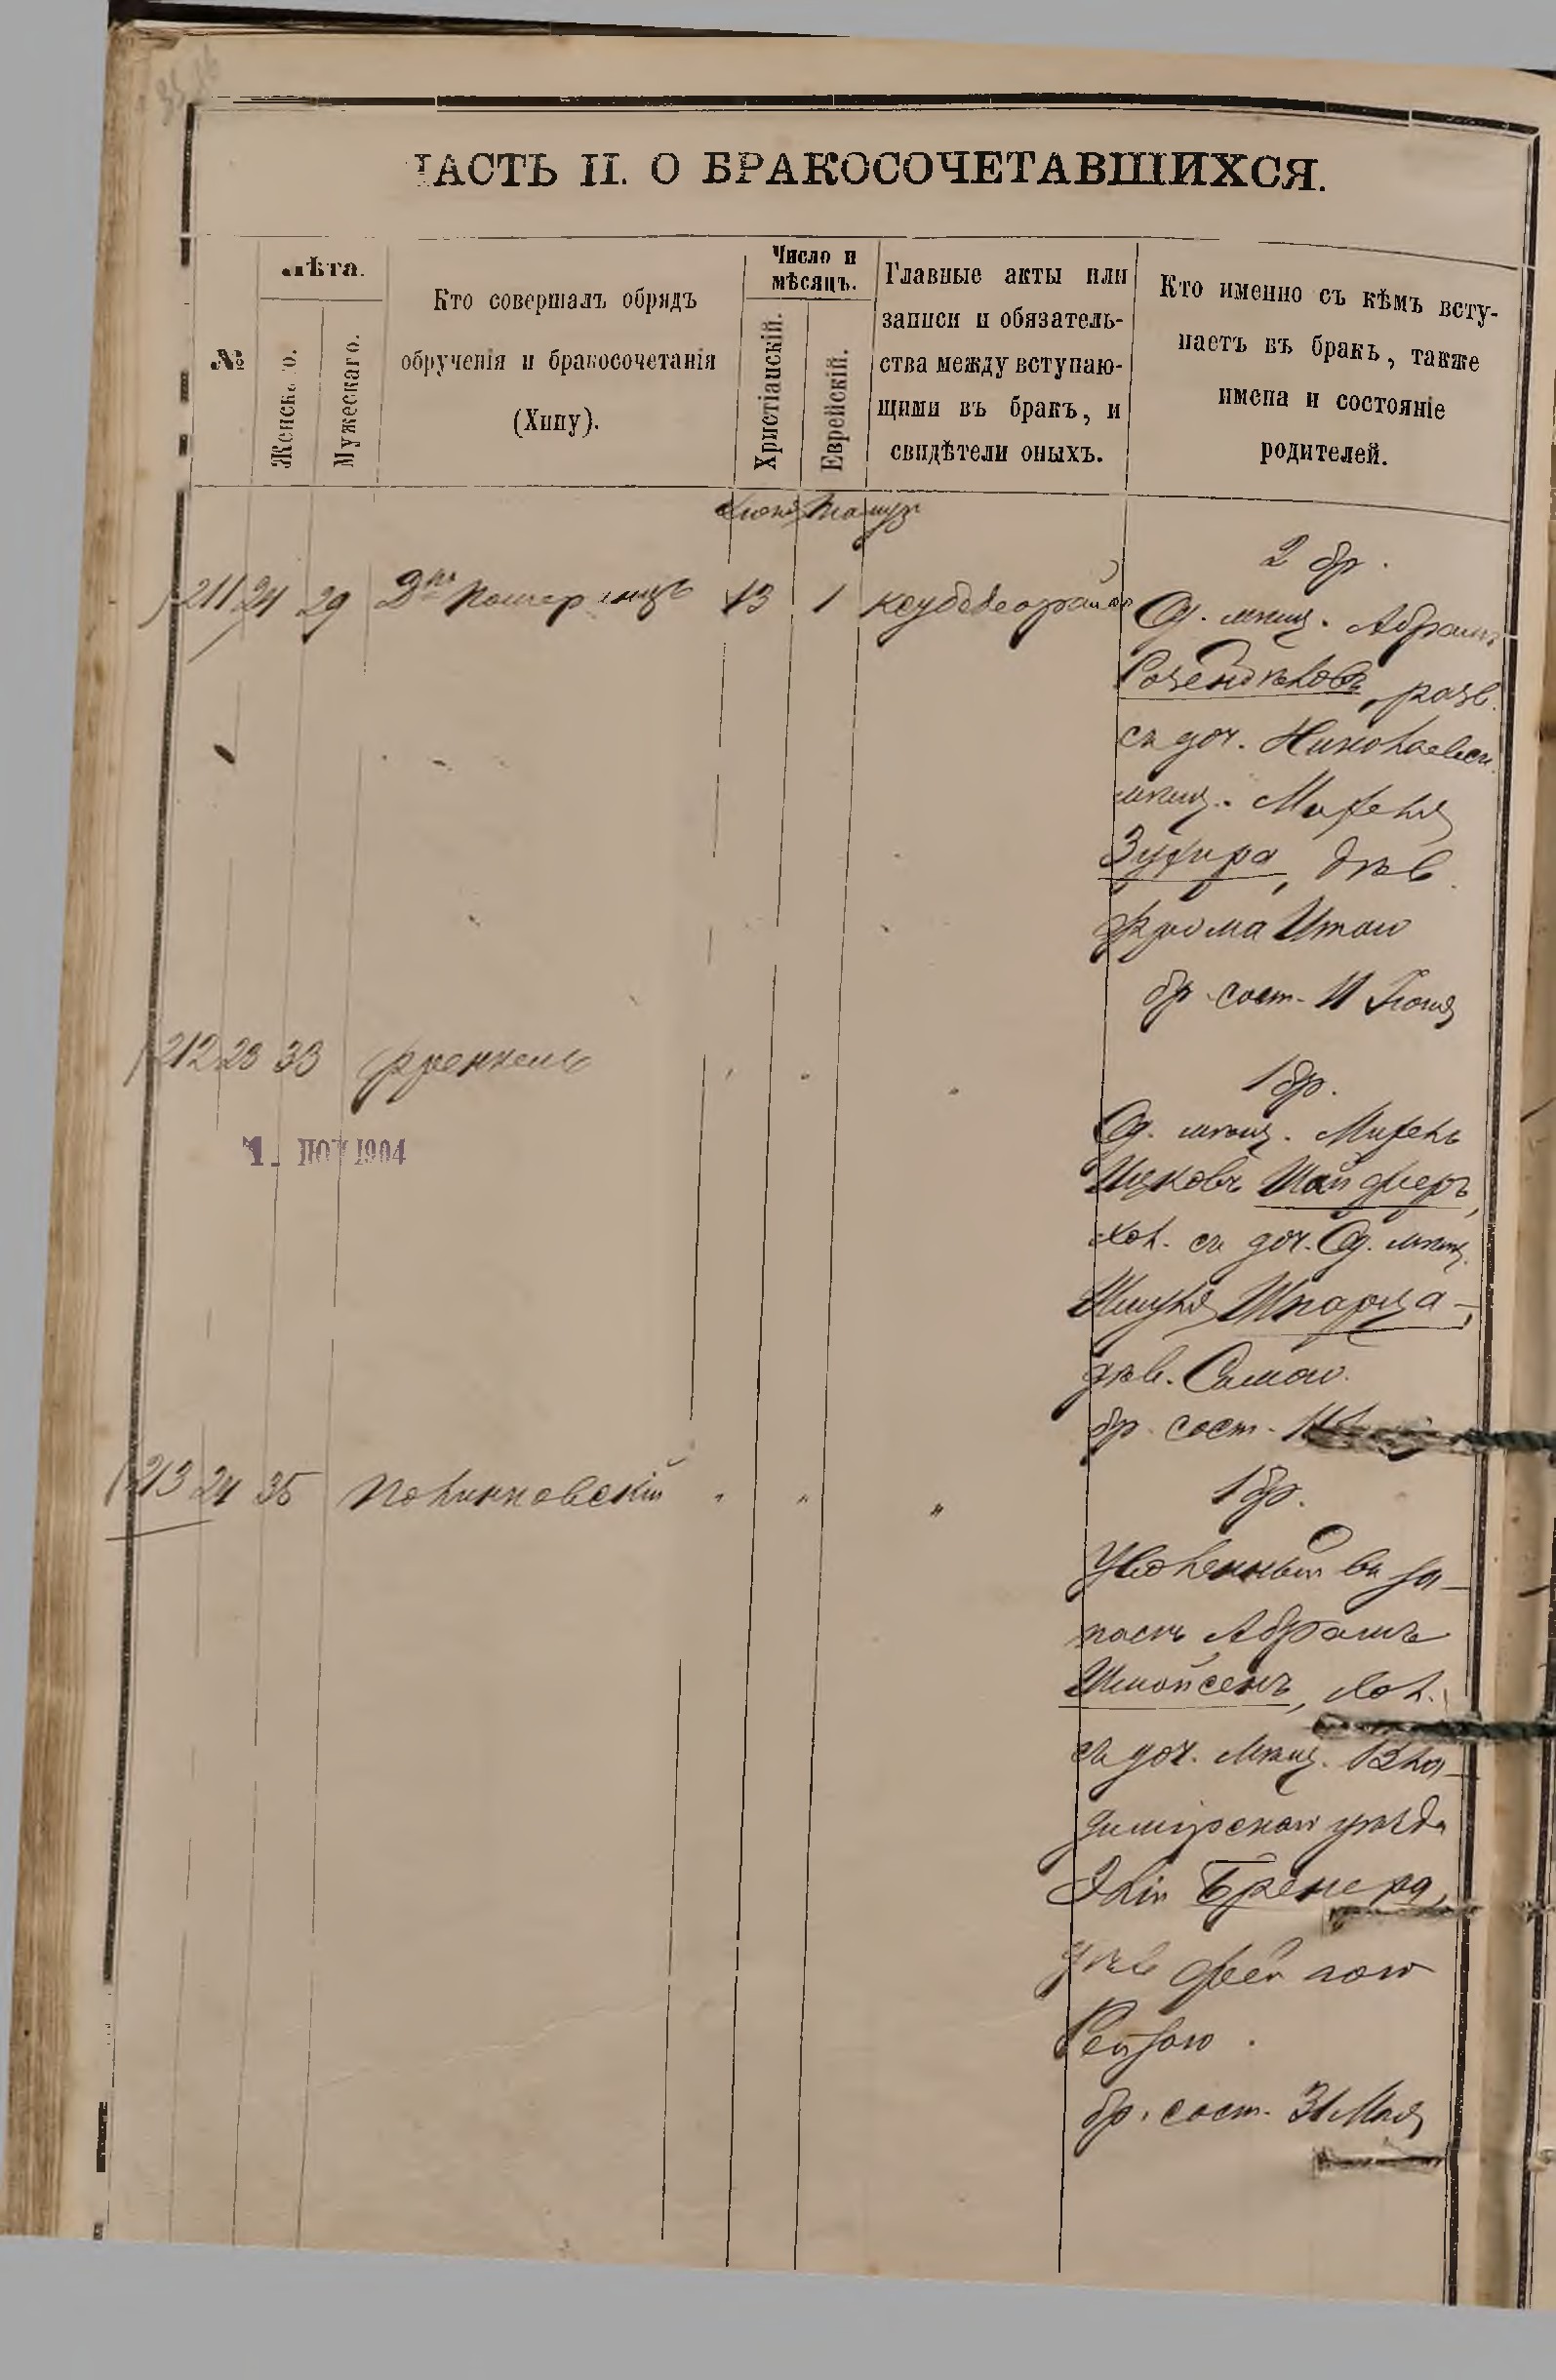 ЧАСТЬ II. О БРАКОСОЧЕТАВШИХСЯ.
№
Лѣта.
Женскаго.
Мужескаго.
Кто совершалъ обрядъ
обрученія и бракосочетанія
(Хипу).
Число и
мѣсяцъ.
Христіанскій.
Еврейскій.
Главные акты или
записи и обязатель-
ства между вступаю-
щими въ бракъ, и
свидѣтели оныхъ.
Кто именно съ кѣмъ всту-
паетъ въ бракъ, также
имена и состояніе
родителей.
Іюня Тамуз
2 бр.
211 24 29 Дръ 13 1
Од. мѣщ. Абрамъ
разв.
съ доч. Николаевск.
мѣщ. Михеля
дѣв.
Фрима Итою
бр. сост. 11 Іюня
212 23 33 Френкель " " "
1 бр.
Од. мѣщ. Михель
Ицковъ Шайферъ,
хол. съ доч. Од. мѣщ.
Шмуля Шварца,
дѣв.
бр. сост.
1. ІЮЛ 1904
213 24 35 Полинковскій " " "
1 бр.
Уволенный въ за-
пасъ Абрамъ
Шмойсенъ, хол.
съ доч. мѣщ. Вла-
димірскаго уѣзда
Элія Бремера,
дѣв
Рейзою.
бр. сост. 31 Мая